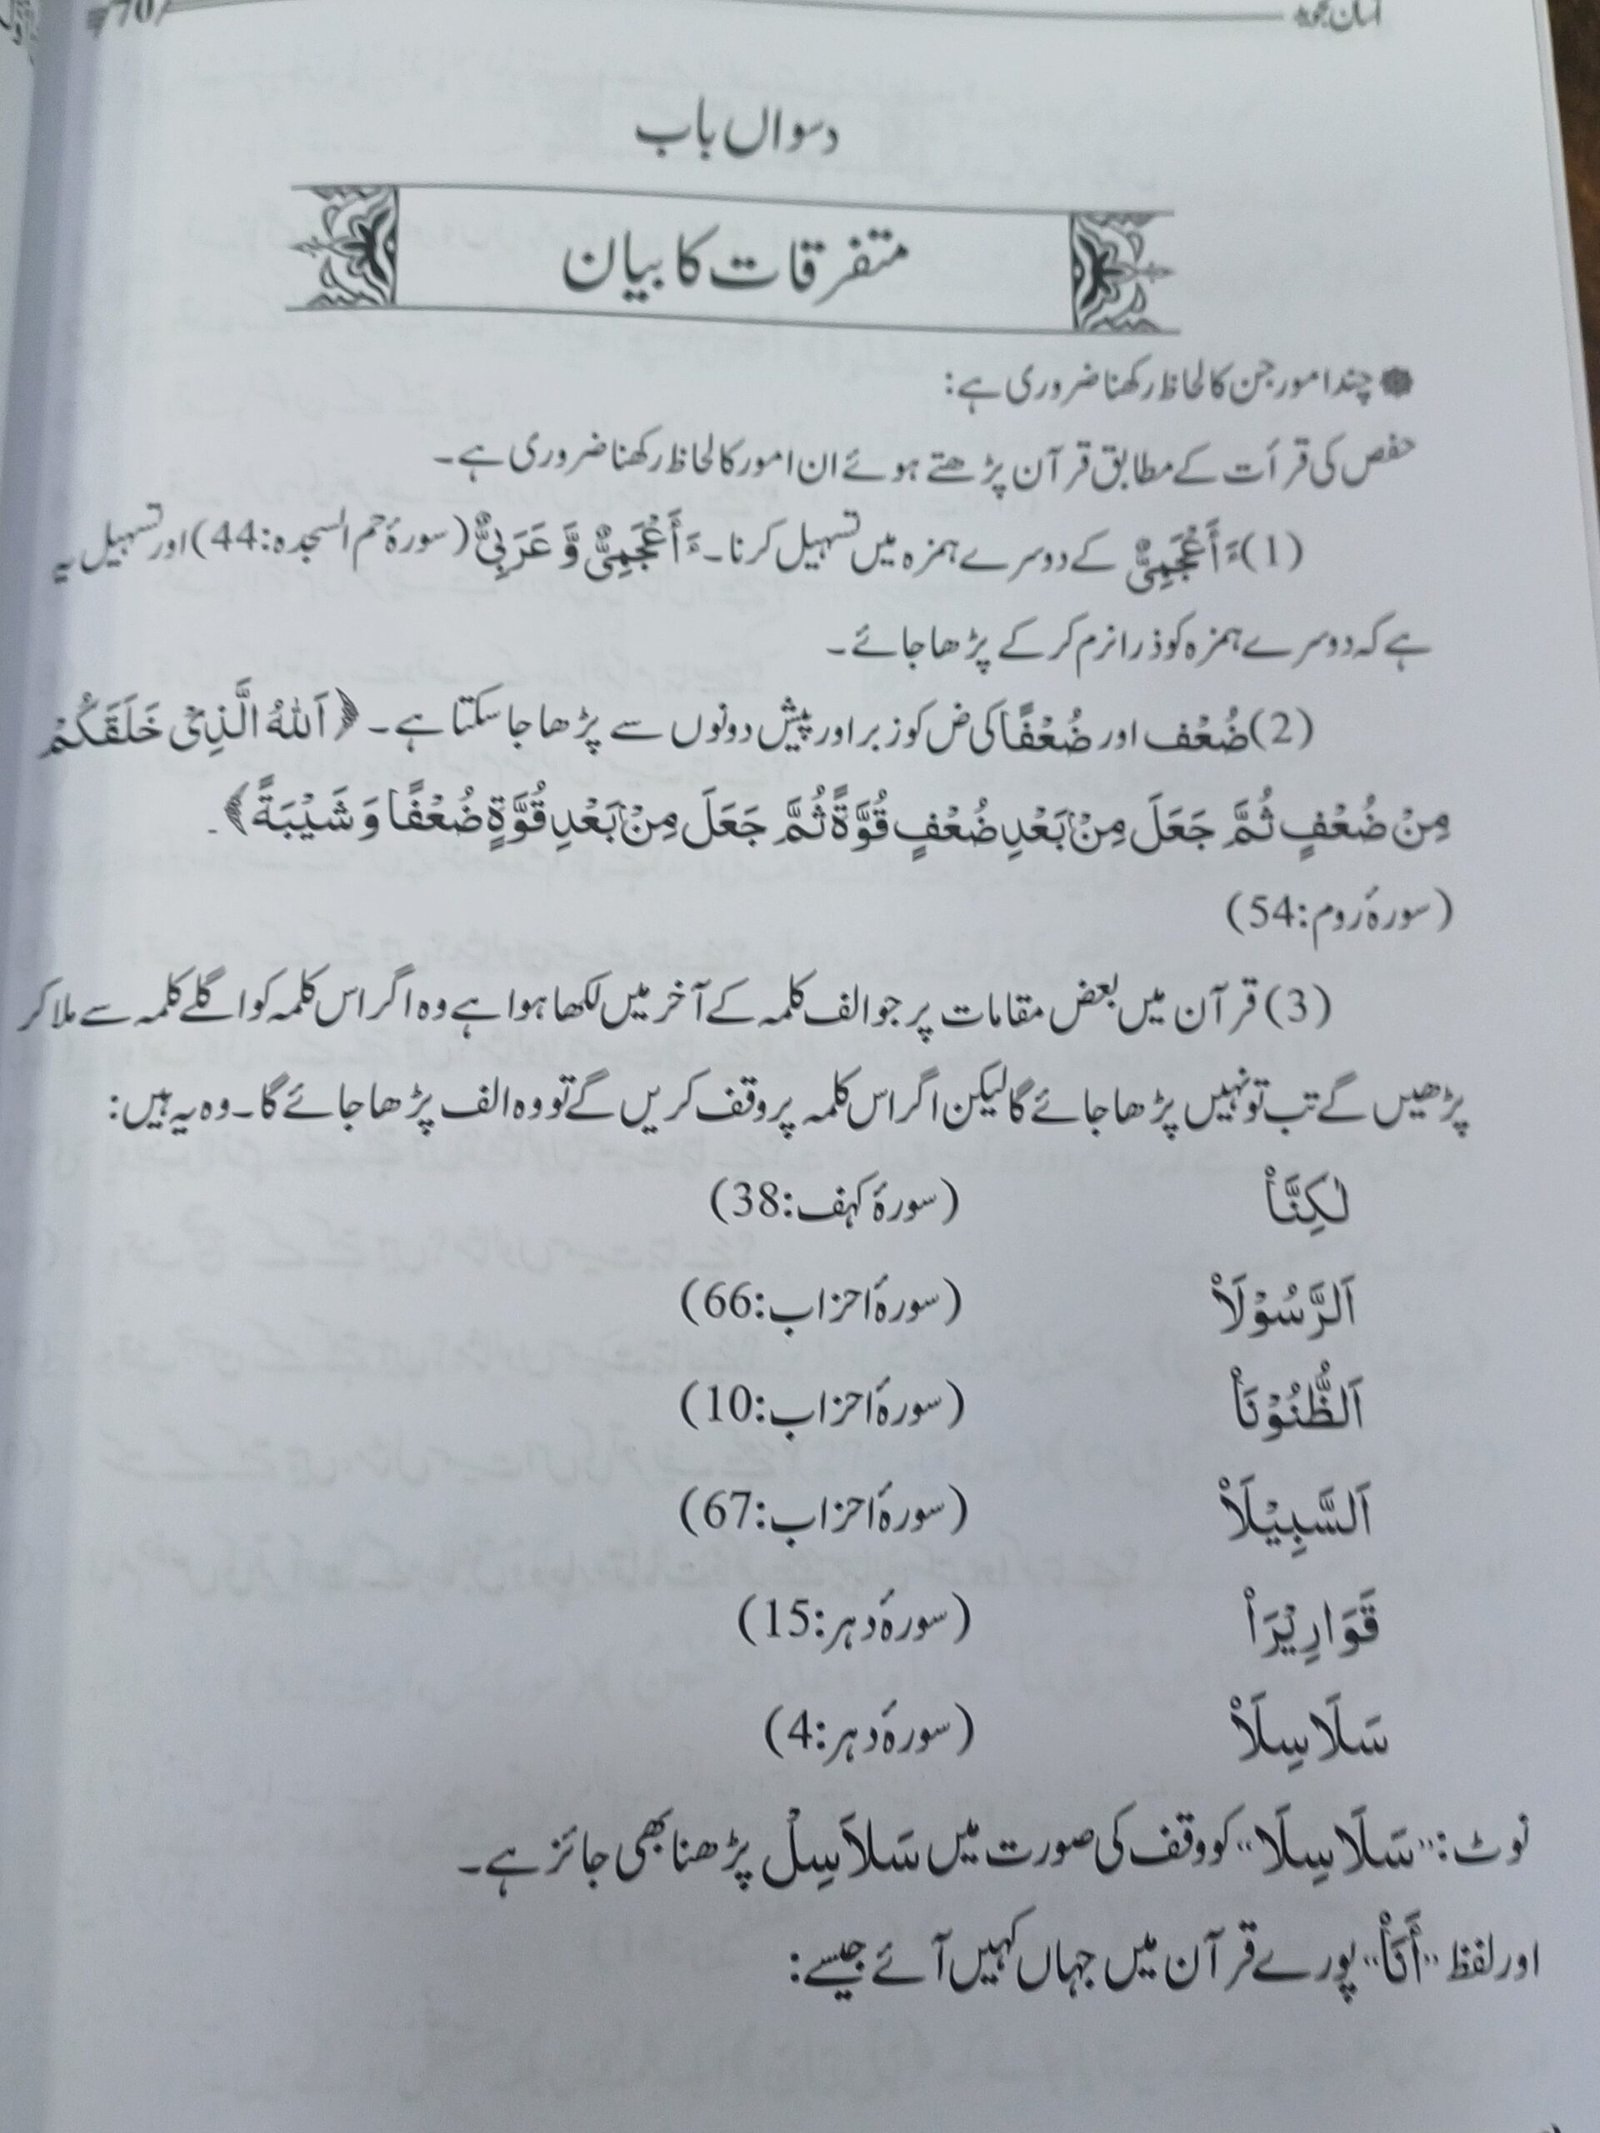 آسان تجوید 70
دسواں باب
متفرقات کا بیان
چند امور جن کا لحاظ رکھنا ضروری ہے:
حفص کی قرأت کے مطابق قرآن پڑھتے ہوئے ان امور کا لحاظ رکھنا ضروری ہے۔
(1) ءَأَعْجَمِیٌّ کے دوسرے ہمزہ میں تسہیل کرنا۔ ءَأَعْجَمِیٌّ وَّ عَرَبِیٌّ (سورۂ حم السجدہ:44) اور تسہیل یہ
ہے کہ دوسرے ہمزہ کو ذرا نرم کر کے پڑھا جائے۔
(2) ضُعْف اور ضُعْفًا کی ض کو زبر اور پیش دونوں سے پڑھا جا سکتا ہے۔ ﴿اَللّٰهُ الَّذِیْ خَلَقَکُمْ
مِنْ ضُعْفٍ ثُمَّ جَعَلَ مِنْۢ بَعْدِ ضُعْفٍ قُوَّةً ثُمَّ جَعَلَ مِنْۢ بَعْدِ قُوَّةٍ ضُعْفًا وَ شَیْبَةً﴾۔
(سورۂ روم:54)
(3) قرآن میں بعض مقامات پر جو الف کلمہ کے آخر میں لکھا ہوا ہے وہ اگر اس کلمہ کو اگلے کلمہ سے ملا کر
پڑھیں گے تب تو نہیں پڑھا جائے گا لیکن اگر اس کلمہ پر وقف کریں گے تو وہ الف پڑھا جائے گا۔ وہ یہ ہیں:
لٰکِنَّاْ (سورۂ کہف:38)
اَلرَّسُوْلَاْ (سورۂ احزاب:66)
اَلظُّنُوْنَاْ (سورۂ احزاب:10)
اَلسَّبِیْلَاْ (سورۂ احزاب:67)
قَوَارِیْرَاْ (سورۂ دہر:15)
سَلَاسِلَاْ (سورۂ دہر:4)
نوٹ: ”سَلَاسِلَا“ کو وقف کی صورت میں سَلاَسِلْ پڑھنا بھی جائز ہے۔
اور لفظ ”أَنَاْ“ پورے قرآن میں جہاں کہیں آئے جیسے: